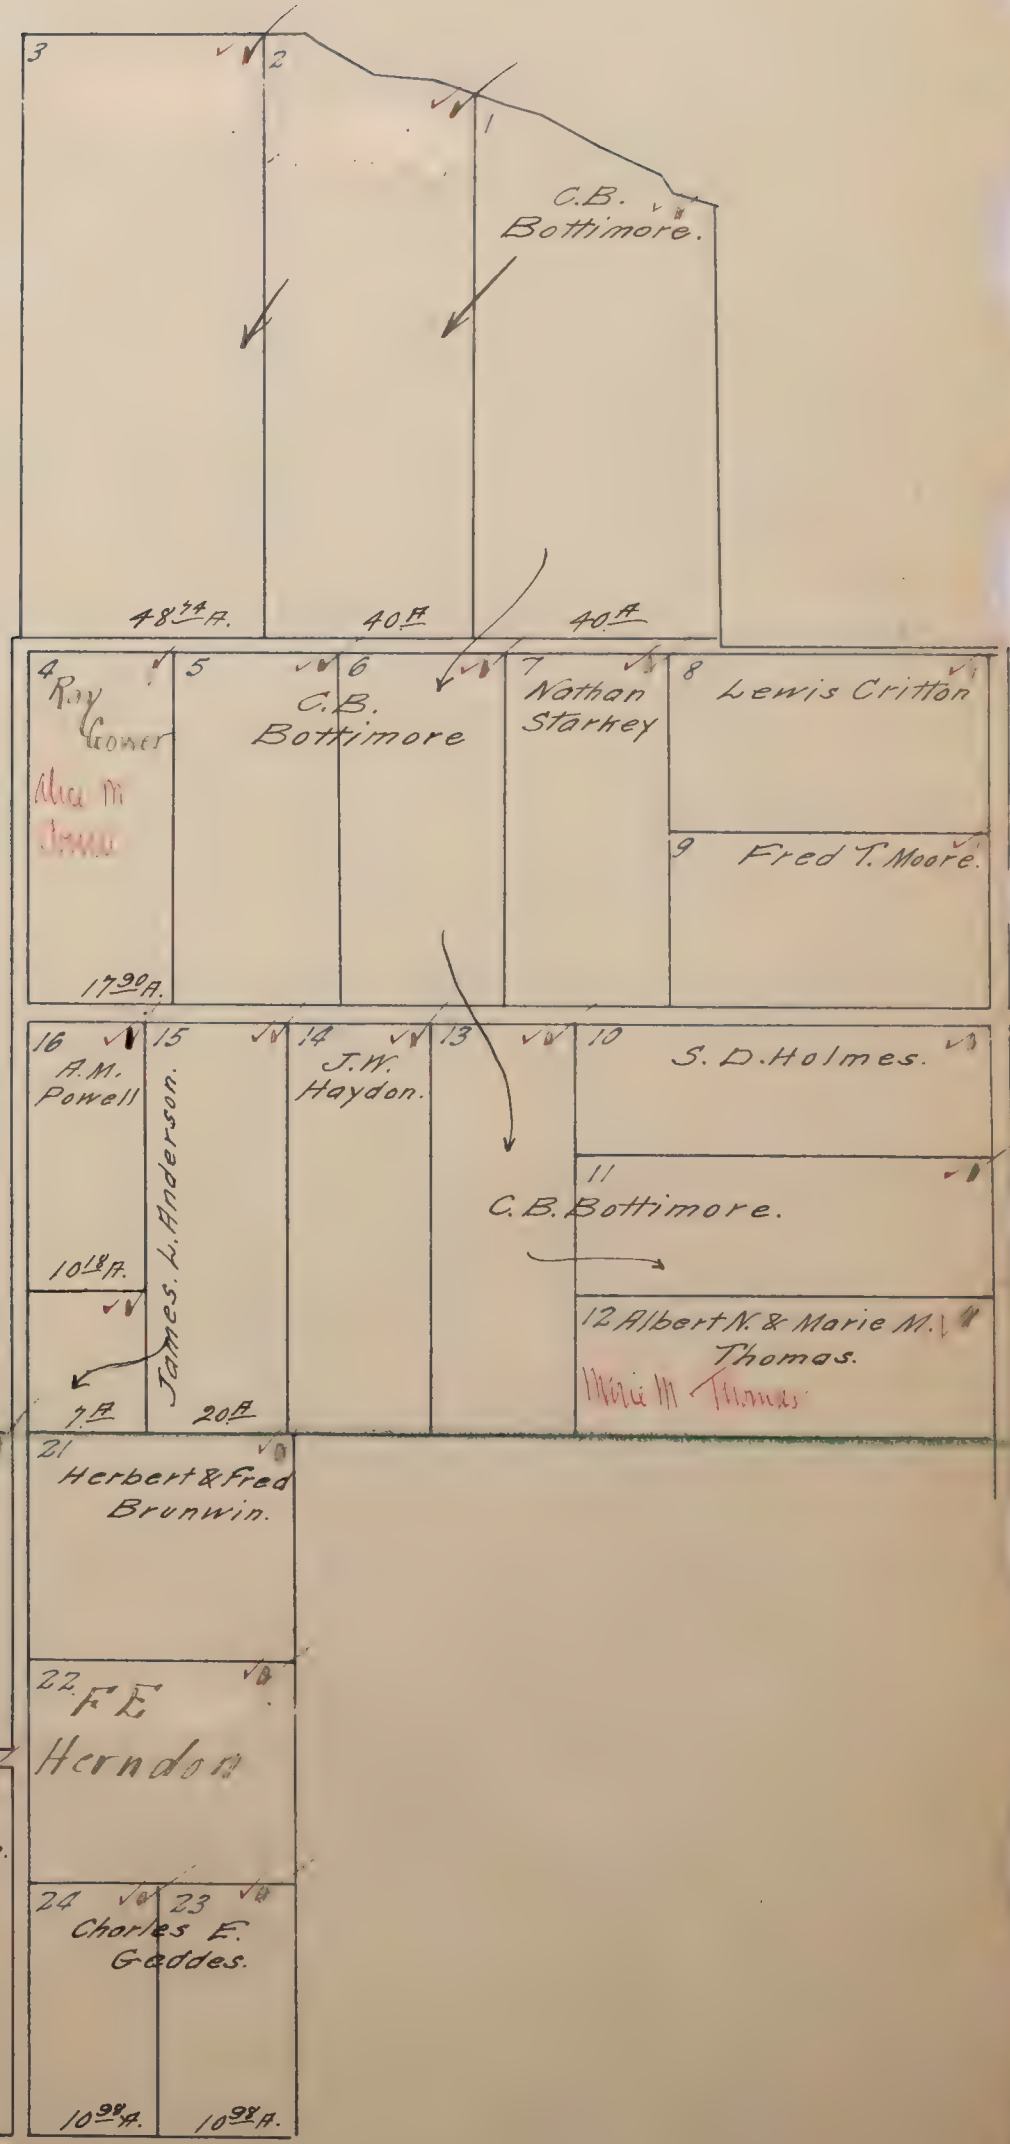 3
2
1
C.B.
Bottimore.
48 74 A.
40 A
40 A
4
Ray
Gower
Alice M
5
6
C.B.
Bottimore
7
Nathan
Starkey
8
Lewis Critton
9
Fred T. Moore.
17 90 A.
16
A.M.
Powell
10 18 A.
7 A
15
James. L. Anderson.
20 A
14
J.W.
Haydon.
13
10
S. D. Holmes.
11
C. B. Bottimore.
12 Albert N. & Marie M.
Thomas.
Marie M Thomas
21
Herbert & Fred
Brunwin.
22
F E
Herndon
24
23
Charles E.
Geddes.
10 98 A.
10 98 A.